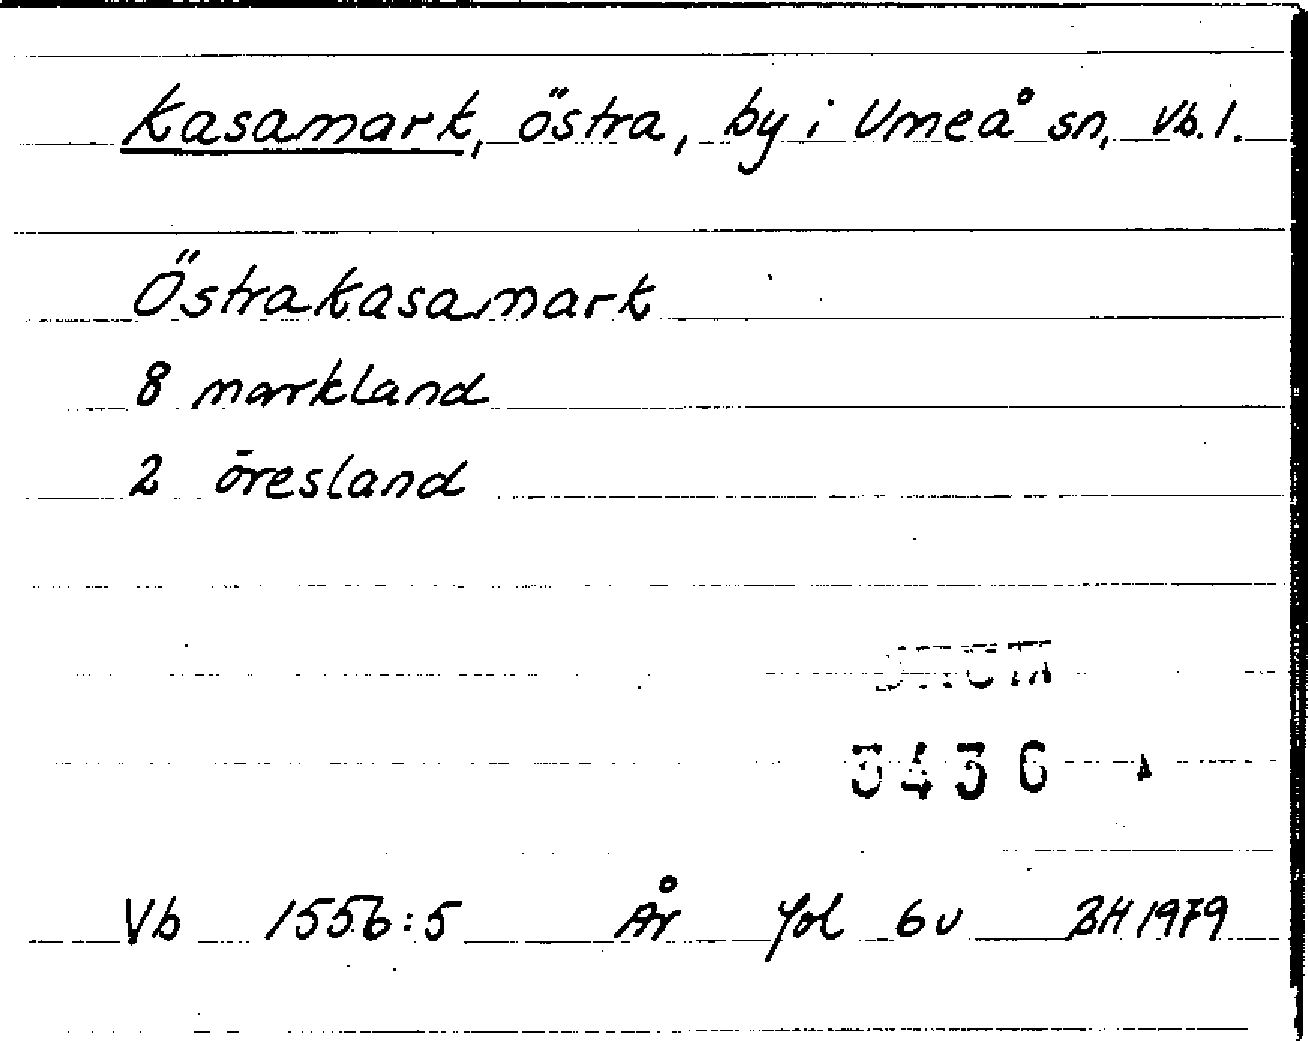 Kasamark, östra, by i Umeå sn, Vb. l.
Östrakasamark
8 markland
2 öresland
3436
Vb 1556:5 År fol 6v BH 1979